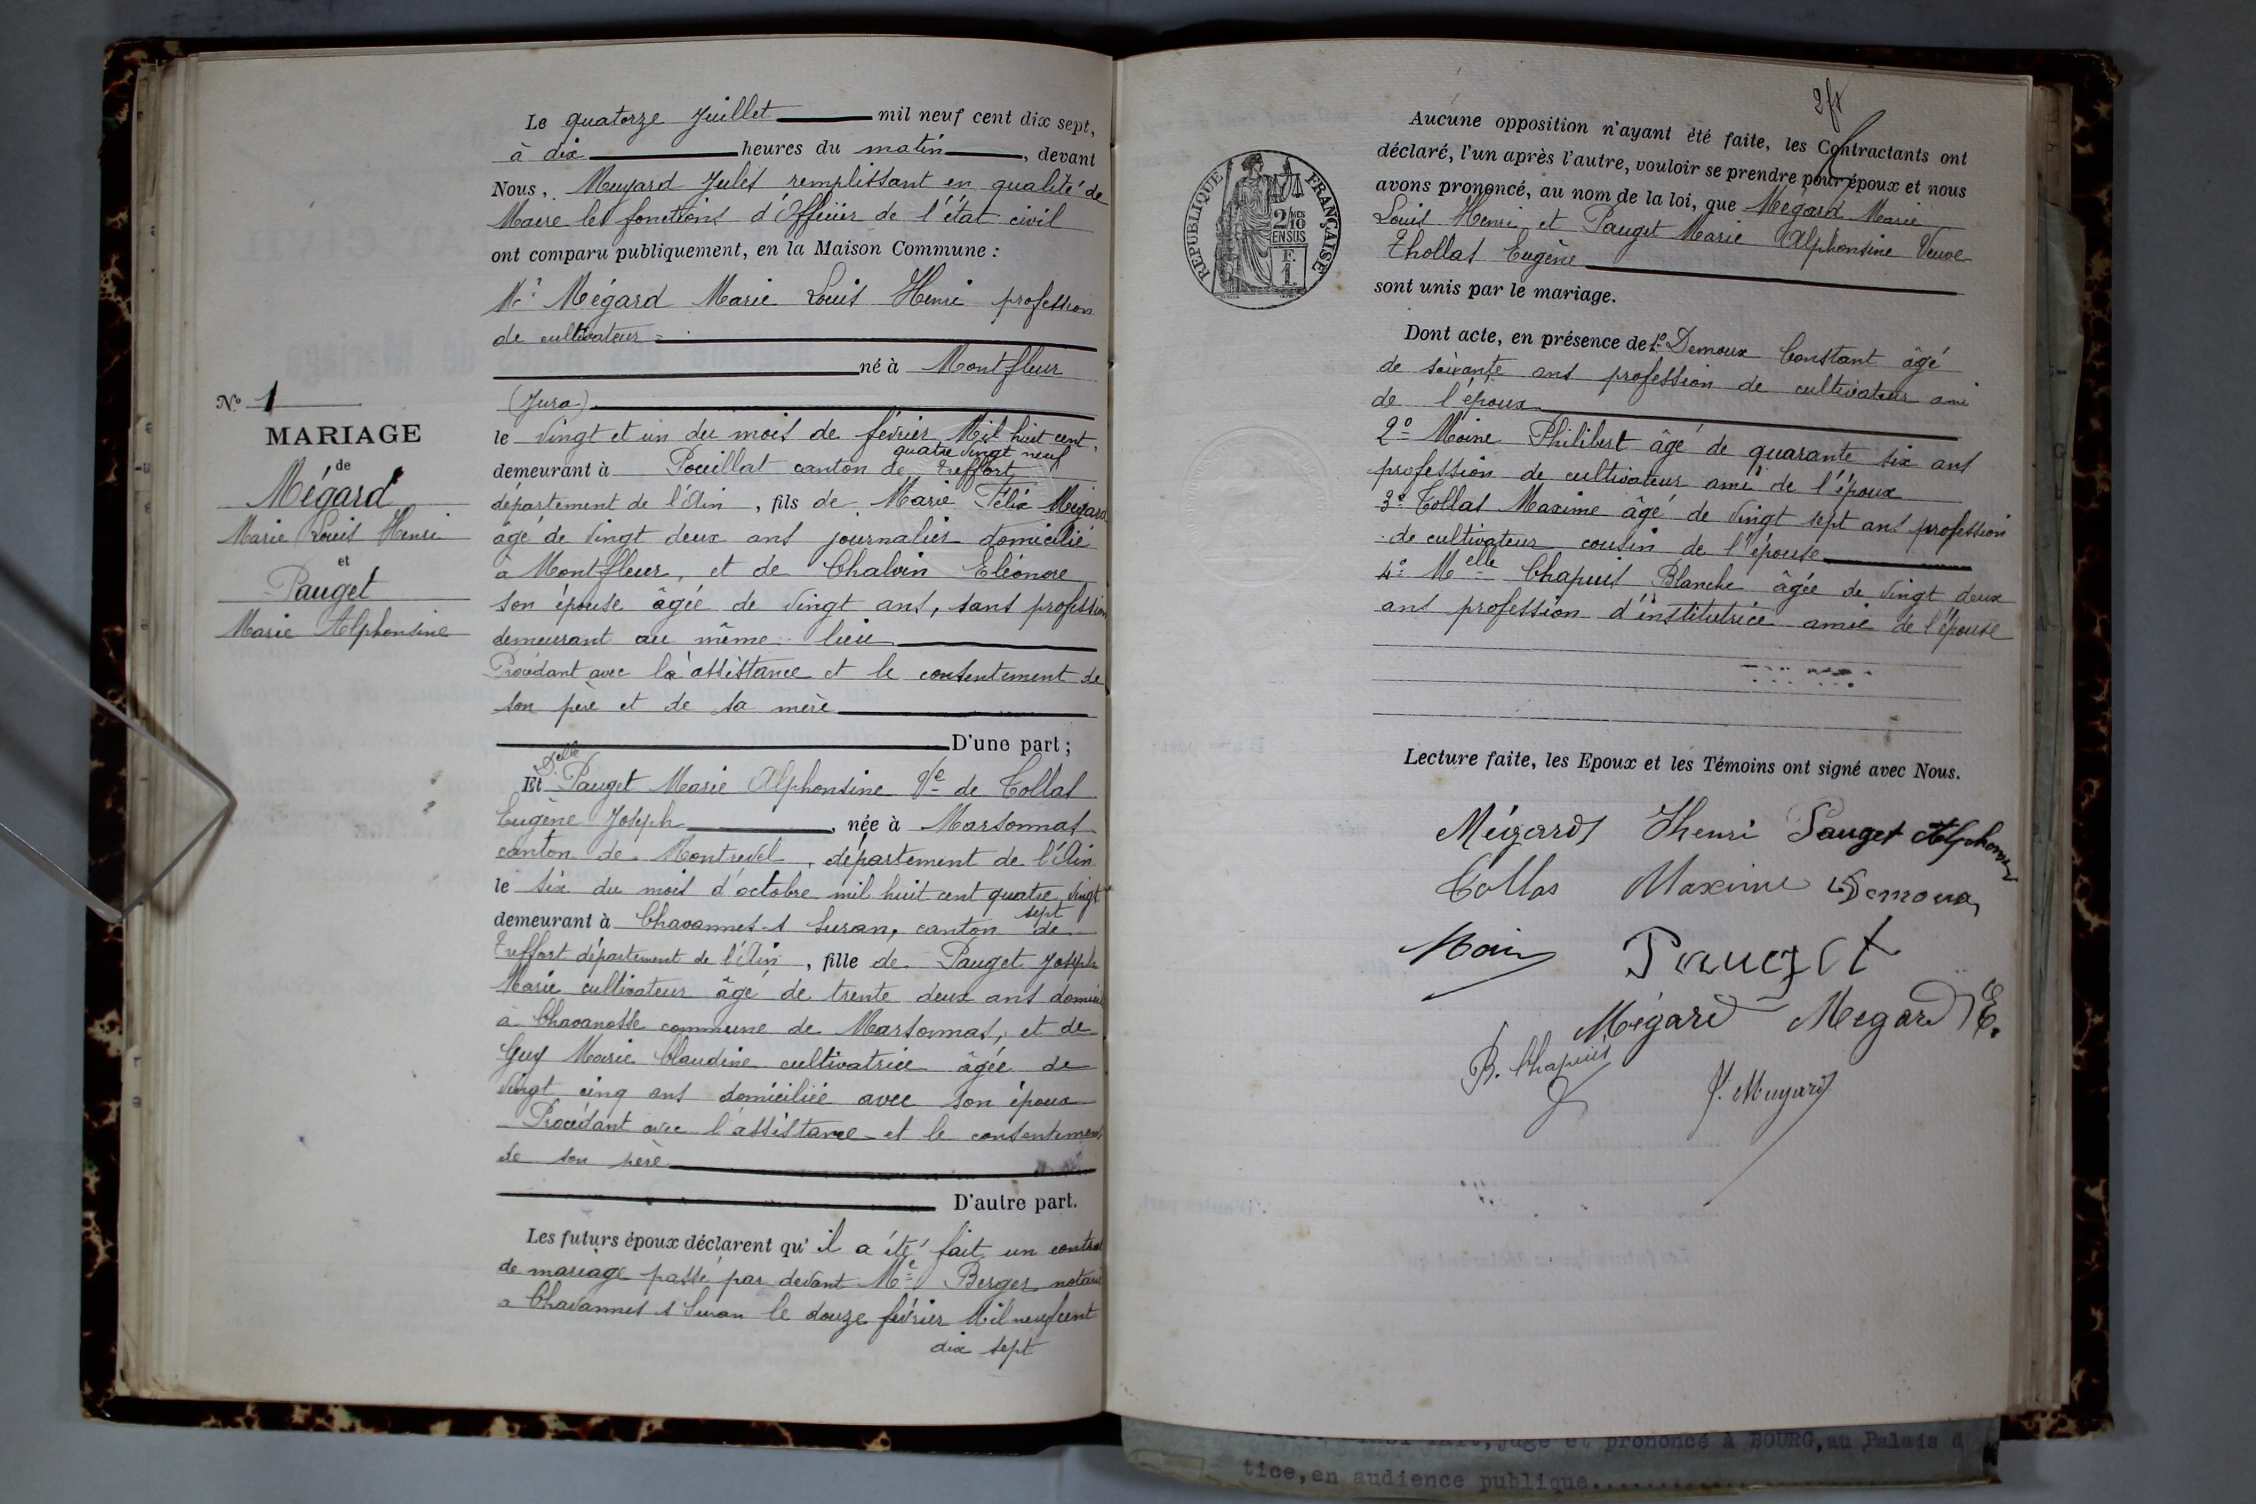 Le quatorze Juillet mil neuf cent dix sept,
à dix heures du matin, devant
Nous, Muyard Jules remplissant en qualité de
Maire les fonctions d'Officier de l'état civil
ont comparu publiquement, en la Maison Commune :
Mr Mégard Marie Louis Henri profession
de cultivateur
né à Montfleur
(Jura)
le vingt et un du mois de février Mil huit cent
quatre vingt neuf
demeurant à Pouillat canton de Treffort
département de l'Ain, fils de Marie Félix Mégard
âgé de vingt deux ans journalier domicilié
à Montfleur, et de Chalvin Eléonore
son épouse âgée de vingt ans, sans profession
demeurant au même lieu
Procédant avec l'assistance et le consentement de
son père et de sa mère
D'une part ;
Delle
Et Pauget Marie Alphonsine Ve de Tollas
Eugène Joseph, née à Marsonnas
canton de Montrevel, département de l'Ain
le six du mois d'octobre mil huit cent quatre vingt
sept
demeurant à Chavannes s Suran, canton de
Treffort département de l'Ain, fille de Pauget Joseph
Marie cultivateur âgé de trente deux ans domicil
à Chavanosse commune de Marsonnas, et de
Guy Marie Claudine cultivatrice âgée de
vingt cinq ans domiciliée avec son époux
Procédant avec l'assistance et le consentement
de son père
D'autre part.
Les futurs époux déclarent qu'il a été fait un contrat
de mariage passé par devant Me Berger notaire
a Chavannes s Suran le douze février Mil neuf cent
dix sept
No 1
MARIAGE
de
Mégard
Marie Louis Henri
et
Pauget
Marie Alphonsine
2f
RÉPUBLIQUE FRANÇAISE
2/10
EN SUS
F.
1
Aucune opposition n'ayant été faite, les Contractants ont
déclaré, l'un après l'autre, vouloir se prendre pour époux et nous
avons prononcé, au nom de la loi, que Mégard Marie
Louis Henri et Pauget Marie Alphonsine Veuve
Thollas Eugène
sont unis par le mariage.
Dont acte, en présence de 1o Demoux Constant âgé
de soixante ans profession de cultivateur ami
de l'époux
2o Moine Philibert âgé de quarante six ans
profession de cultivateur ami de l'époux
3o Tollas Maxime âgé de vingt sept ans profession
de cultivateur cousin de l'épouse
4o Melle Chapuis Blanche âgée de vingt deux
ans profession d'institutrice amie de l'épouse
Lecture faite, les Epoux et les Témoins ont signé avec Nous.
Mégard Henri Pauget Alphonsine
Tollas Maxime Demoux
Moine Pauget
Mégard Megard E.
B. Chapuis
J. Muyard
jugé et prononcé A BOURG, au Palais d
tice, en audience publique